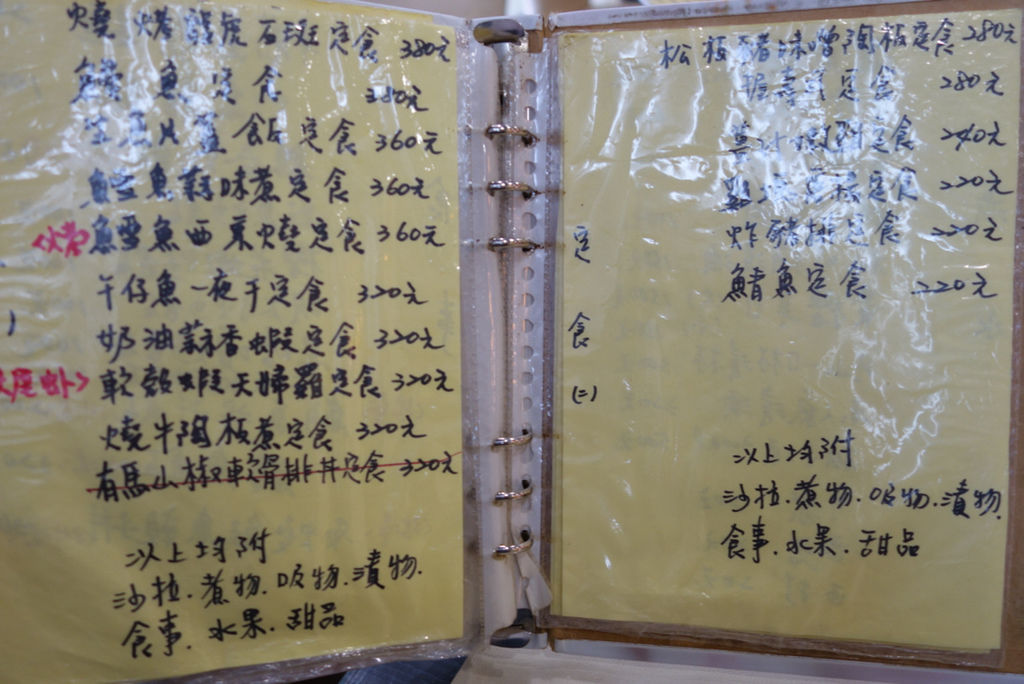 燒烤龍虎石斑定食 380元
鰻魚定食 380元
生魚片蓋飯定食 360元
鱈魚蒜味煮定食 360元
鱈魚西京燒定食 360元
午仔魚一夜干定食 320元
奶油蒜香蝦定食 320元
軟殼蝦天婦羅定食 320元
燒牛陶板煮定食 320元
有馬山椒軟骨排丼定食 320元
以上均附
沙拉.煮物.吸物.漬物.
食事.水果.甜品
定食(二)
松板豬味噌陶板定食 280元
握壽司定食 280元
定食 240元
定食 220元
炸豬排定食 220元
鯖魚定食 220元
以上均附
沙拉.煮物.吸物.漬物.
食事.水果.甜品